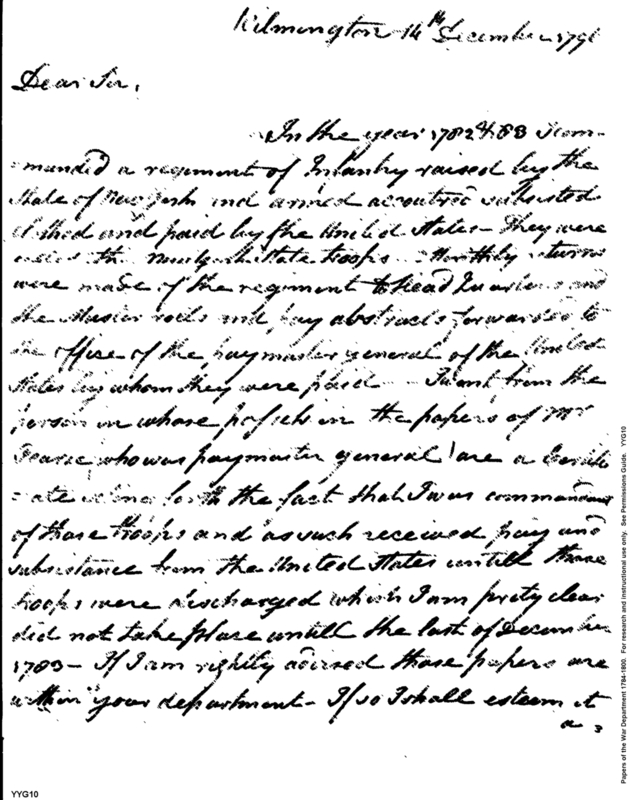 Wilmington 14th December 1791
Dear Sir,
In the year 1782 & 83 I com-
manded a regiment of Infantry raised by the
State of New York and armed accoutred subsisted
clothed and paid by the United States - They were
called the New York State troops - Monthly returns
were made of the regiment to head Quarters and
the Muster rolls and pay abstracts forwarded to
the office of the paymaster general of the United
States by whom they were paid - I want from the
person in whose possession the papers of Mr
Pearce who was paymaster general are a certifi
cate setting forth the fact that I was commandant
of those troops and as such received pay and
subsistance from the United States untill those
troops were discharged which I am prety clear
did not take place untill the last of December
1783 - If I am rightly advised those papers are
within your department - If so I shall esteem it
a
YYG10
Papers of the War Department 1784-1800. For research and instructional use only. See Permissions Guide. YYG10